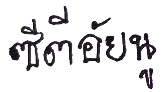 ซีตีอัยนู